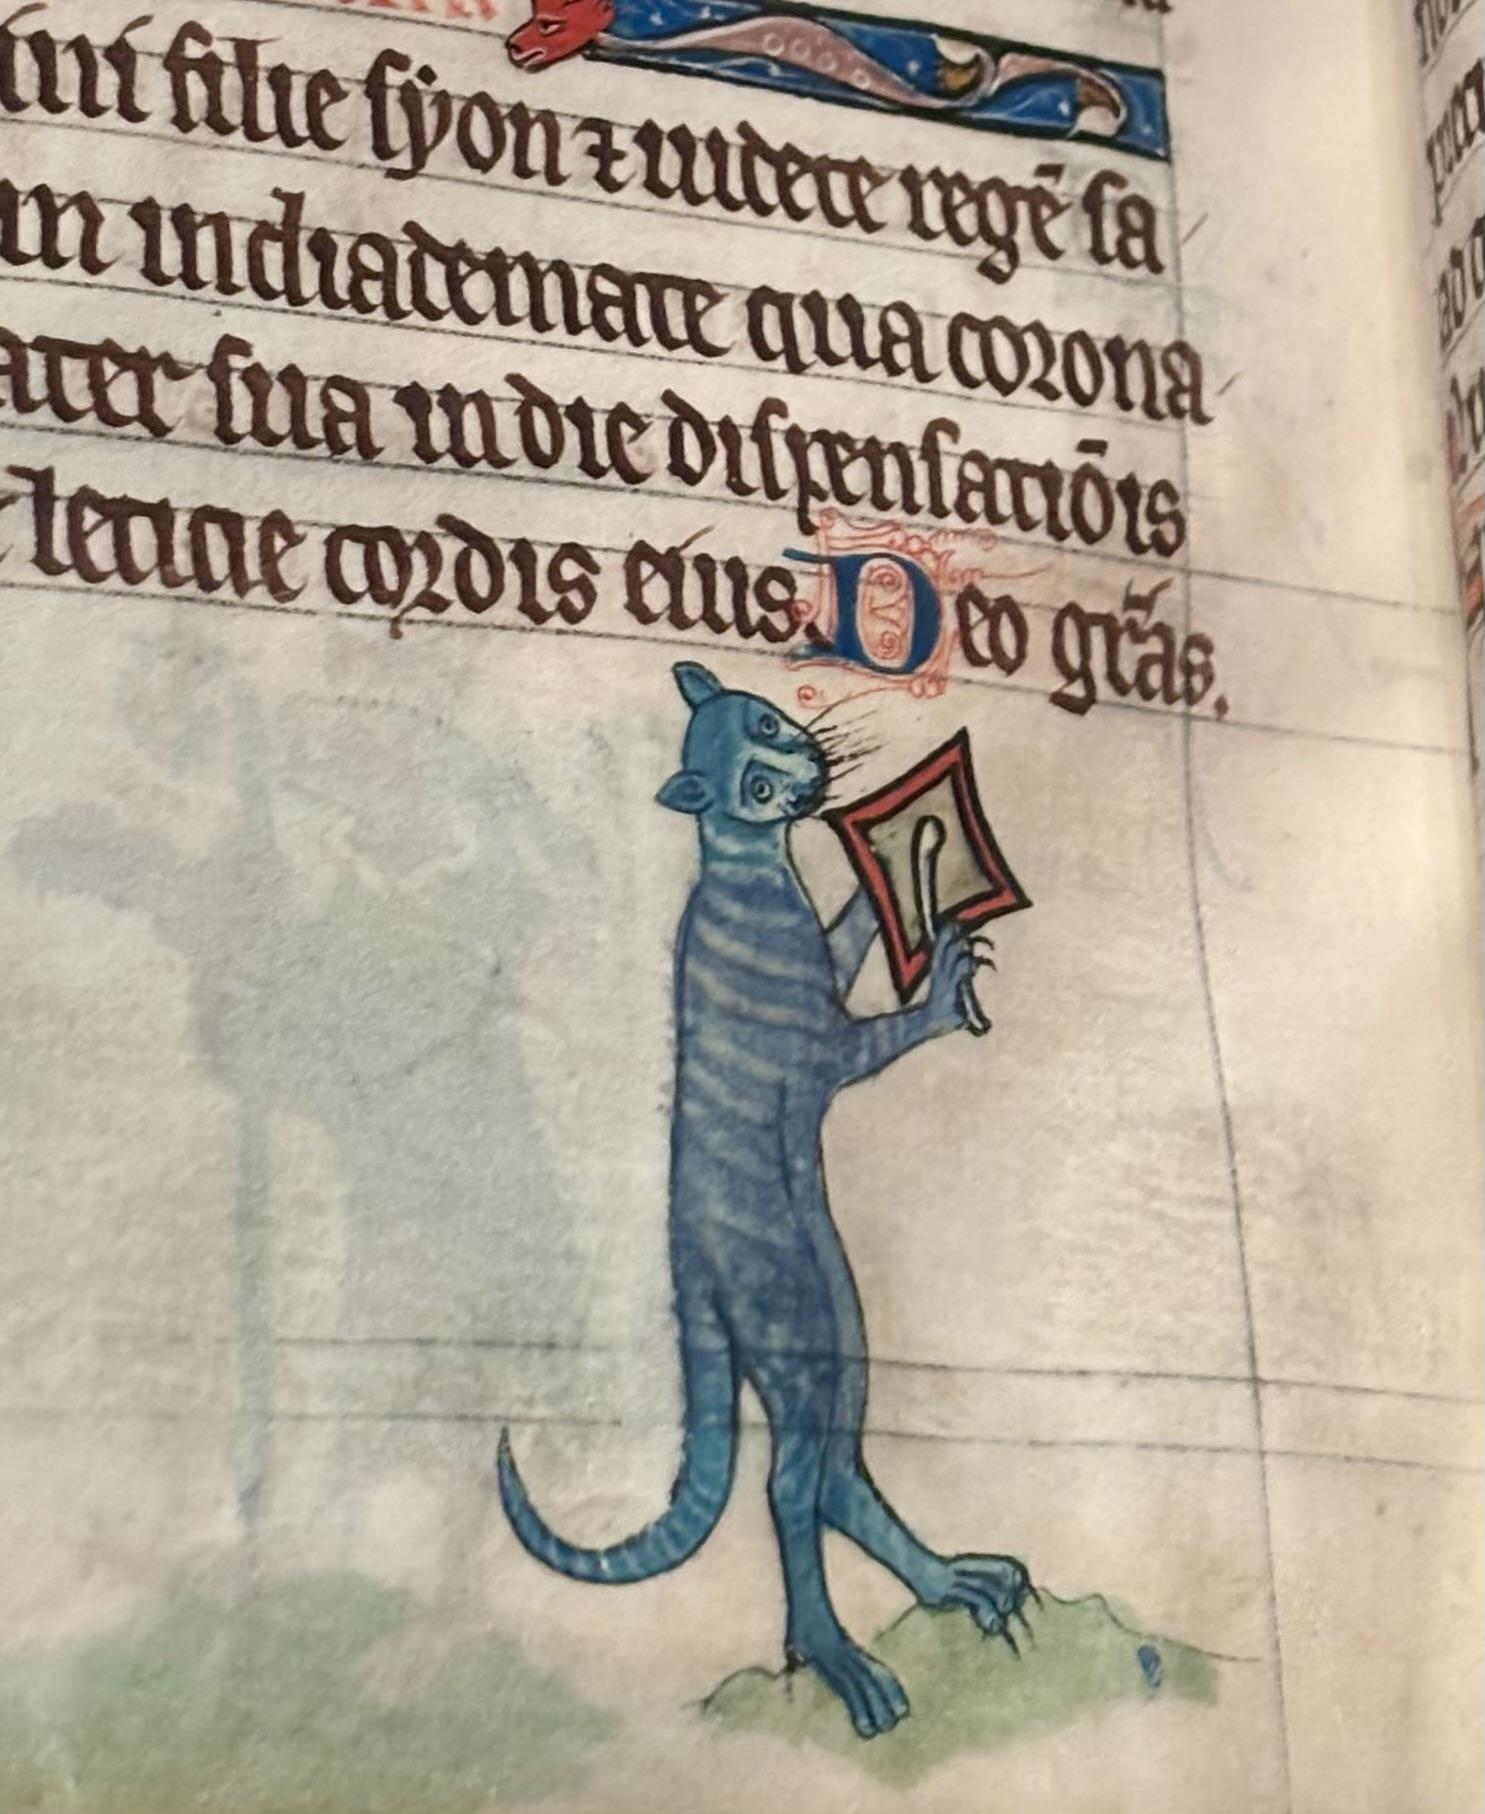 ini filie sẏon ⁊ uidete regē sa
in indiademate qua corona
ater sua in die dispensatiōis
leticie cordis eius. Deo grās.